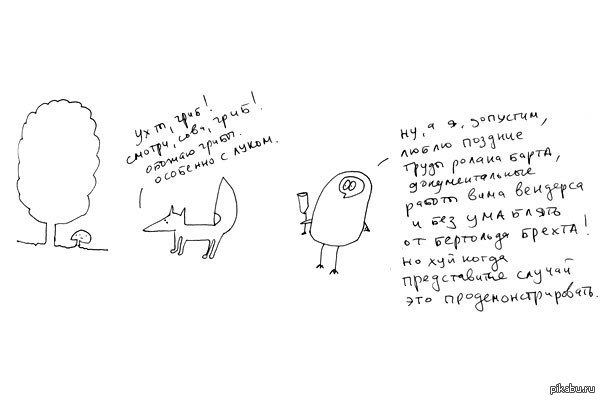 ух ты, гриб!
смотри, сова, гриб!
обожаю грибы.
особенно с луком.
ну, а я, допустим,
люблю поздние
труды ролана барта,
документальные
работы вима вендерса
и без ума блять
от бертольда брехта!
но хуй когда
представится случай
это продемонстрировать.
pikabu.ru